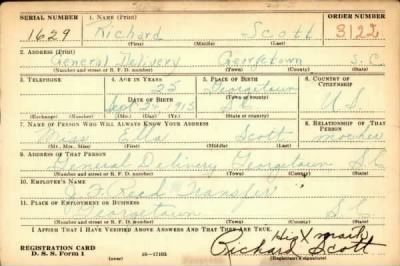 SERIAL NUMBER 1. NAME (Print) ORDER NUMBER
1629 Richard Scott 3122
(First) (Middle) (Last)
2. ADDRESS (Print)
General Delivery Georgetown S.C.
(Number and street or R. F. D. number) (Town) (County) (State)
3. TELEPHONE 4. AGE IN YEARS 5. PLACE OF BIRTH 6. COUNTRY OF CITIZENSHIP
25 Georgetown
DATE OF BIRTH (Town or county)
Sept 24 1915 S.C. U.S.
(Exchange) (Number) (Mo.) (Day) (Yr.) (State or country)
7. NAME OF PERSON WHO WILL ALWAYS KNOW YOUR ADDRESS 8. RELATIONSHIP OF THAT PERSON
Scott Mother
(Mr., Mrs., Miss) (First) (Middle) (Last)
9. ADDRESS OF THAT PERSON
General Delivery Georgetown S.C.
(Number and street or R. F. D. number) (Town) (County) (State)
10. EMPLOYER'S NAME
Transfer
11. PLACE OF EMPLOYMENT OR BUSINESS
S.C.
(Number and street or R. F. D. number) (Town) (County) (State)
I AFFIRM THAT I HAVE VERIFIED ABOVE ANSWERS AND THAT THEY ARE TRUE.
His X mark
REGISTRATION CARD Richard Scott
D. S. S. Form 1 (over) 16—17105 (Registrant's signature)